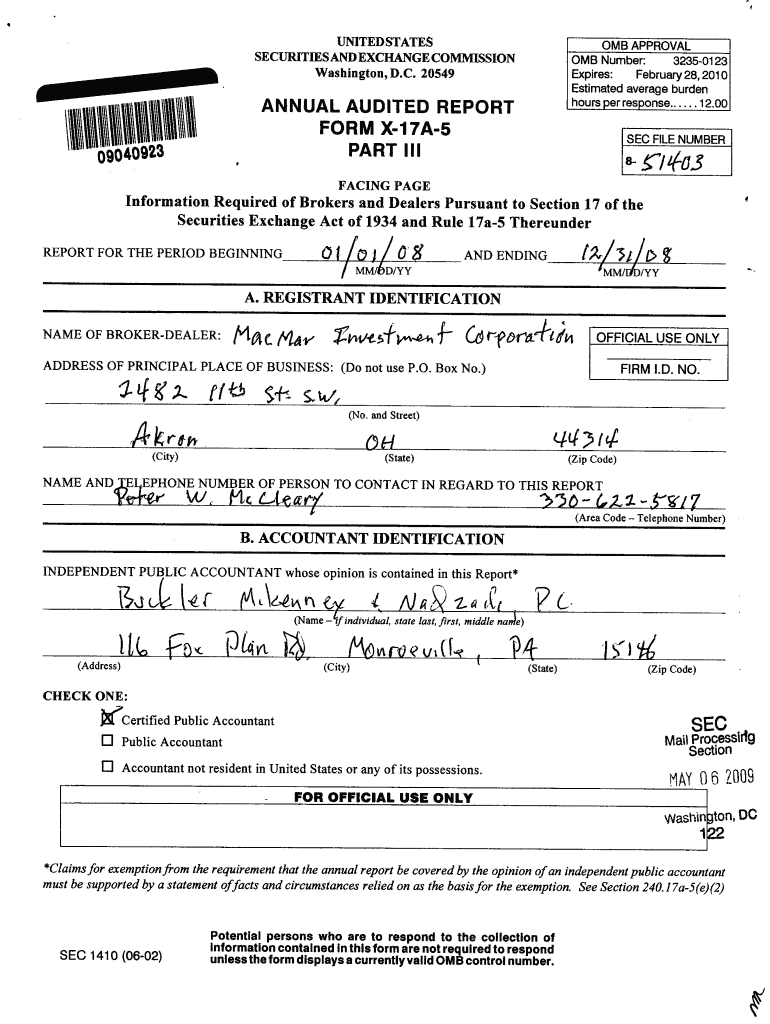 UNITED STATES
SECURITIES AND EXCHANGE COMMISSION
Washington, D.C. 20549
ANNUAL AUDITED REPORT
FORM X-17A-5
PART III
OMB APPROVAL
OMB Number: 3235-0123
Expires: February 28, 2010
Estimated average burden
hours per response...... 12.00
SEC FILE NUMBER
8- 51403
09040923
FACING PAGE
Information Required of Brokers and Dealers Pursuant to Section 17 of the
Securities Exchange Act of 1934 and Rule 17a-5 Thereunder
REPORT FOR THE PERIOD BEGINNING 01/01/08 AND ENDING 12/31/08
MM/DD/YY MM/DD/YY
A. REGISTRANT IDENTIFICATION
NAME OF BROKER-DEALER: MacMar Investment Corporation
OFFICIAL USE ONLY
FIRM I.D. NO.
ADDRESS OF PRINCIPAL PLACE OF BUSINESS: (Do not use P.O. Box No.)
2482 11th St. S.W,
(No. and Street)
Akron OH 44314
(City) (State) (Zip Code)
NAME AND TELEPHONE NUMBER OF PERSON TO CONTACT IN REGARD TO THIS REPORT
Peter W. McCleary 330-622-5817
(Area Code – Telephone Number)
B. ACCOUNTANT IDENTIFICATION
INDEPENDENT PUBLIC ACCOUNTANT whose opinion is contained in this Report*
P.C.
(Name – if individual, state last, first, middle name)
116 Fox Plan Rd, Monroeville, PA 15146
(Address) (City) (State) (Zip Code)
CHECK ONE:
Certified Public Accountant
Public Accountant
Accountant not resident in United States or any of its possessions.
SEC
Mail Processing
Section
MAY 06 2009
Washington, DC
122
FOR OFFICIAL USE ONLY
*Claims for exemption from the requirement that the annual report be covered by the opinion of an independent public accountant
must be supported by a statement of facts and circumstances relied on as the basis for the exemption. See Section 240.17a-5(e)(2)
SEC 1410 (06-02)
Potential persons who are to respond to the collection of
information contained in this form are not required to respond
unless the form displays a currently valid OMB control number.